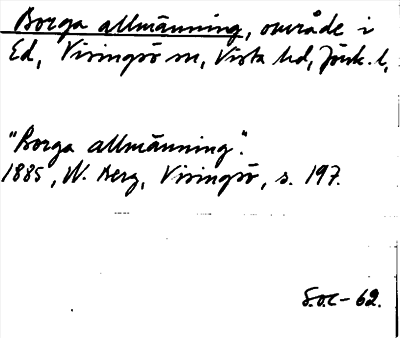 Borga allmänning, område i
Ed, Visingsö sn, Vista hd, Jönk. l,
"Borga allmänning".
1885, W. Berg, Visingsö, s. 197.
S.O.C-62.